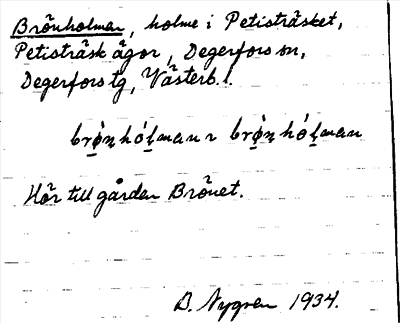 Brönholmar, holme i Petisträsket,
Petisträsk ägor, Degerfors sn,
Degerfors tg, Västerb. l.
brö̀n hólman ~ brö̀n hólman
Hör till gården Brönet.
B. Nygren 1934.